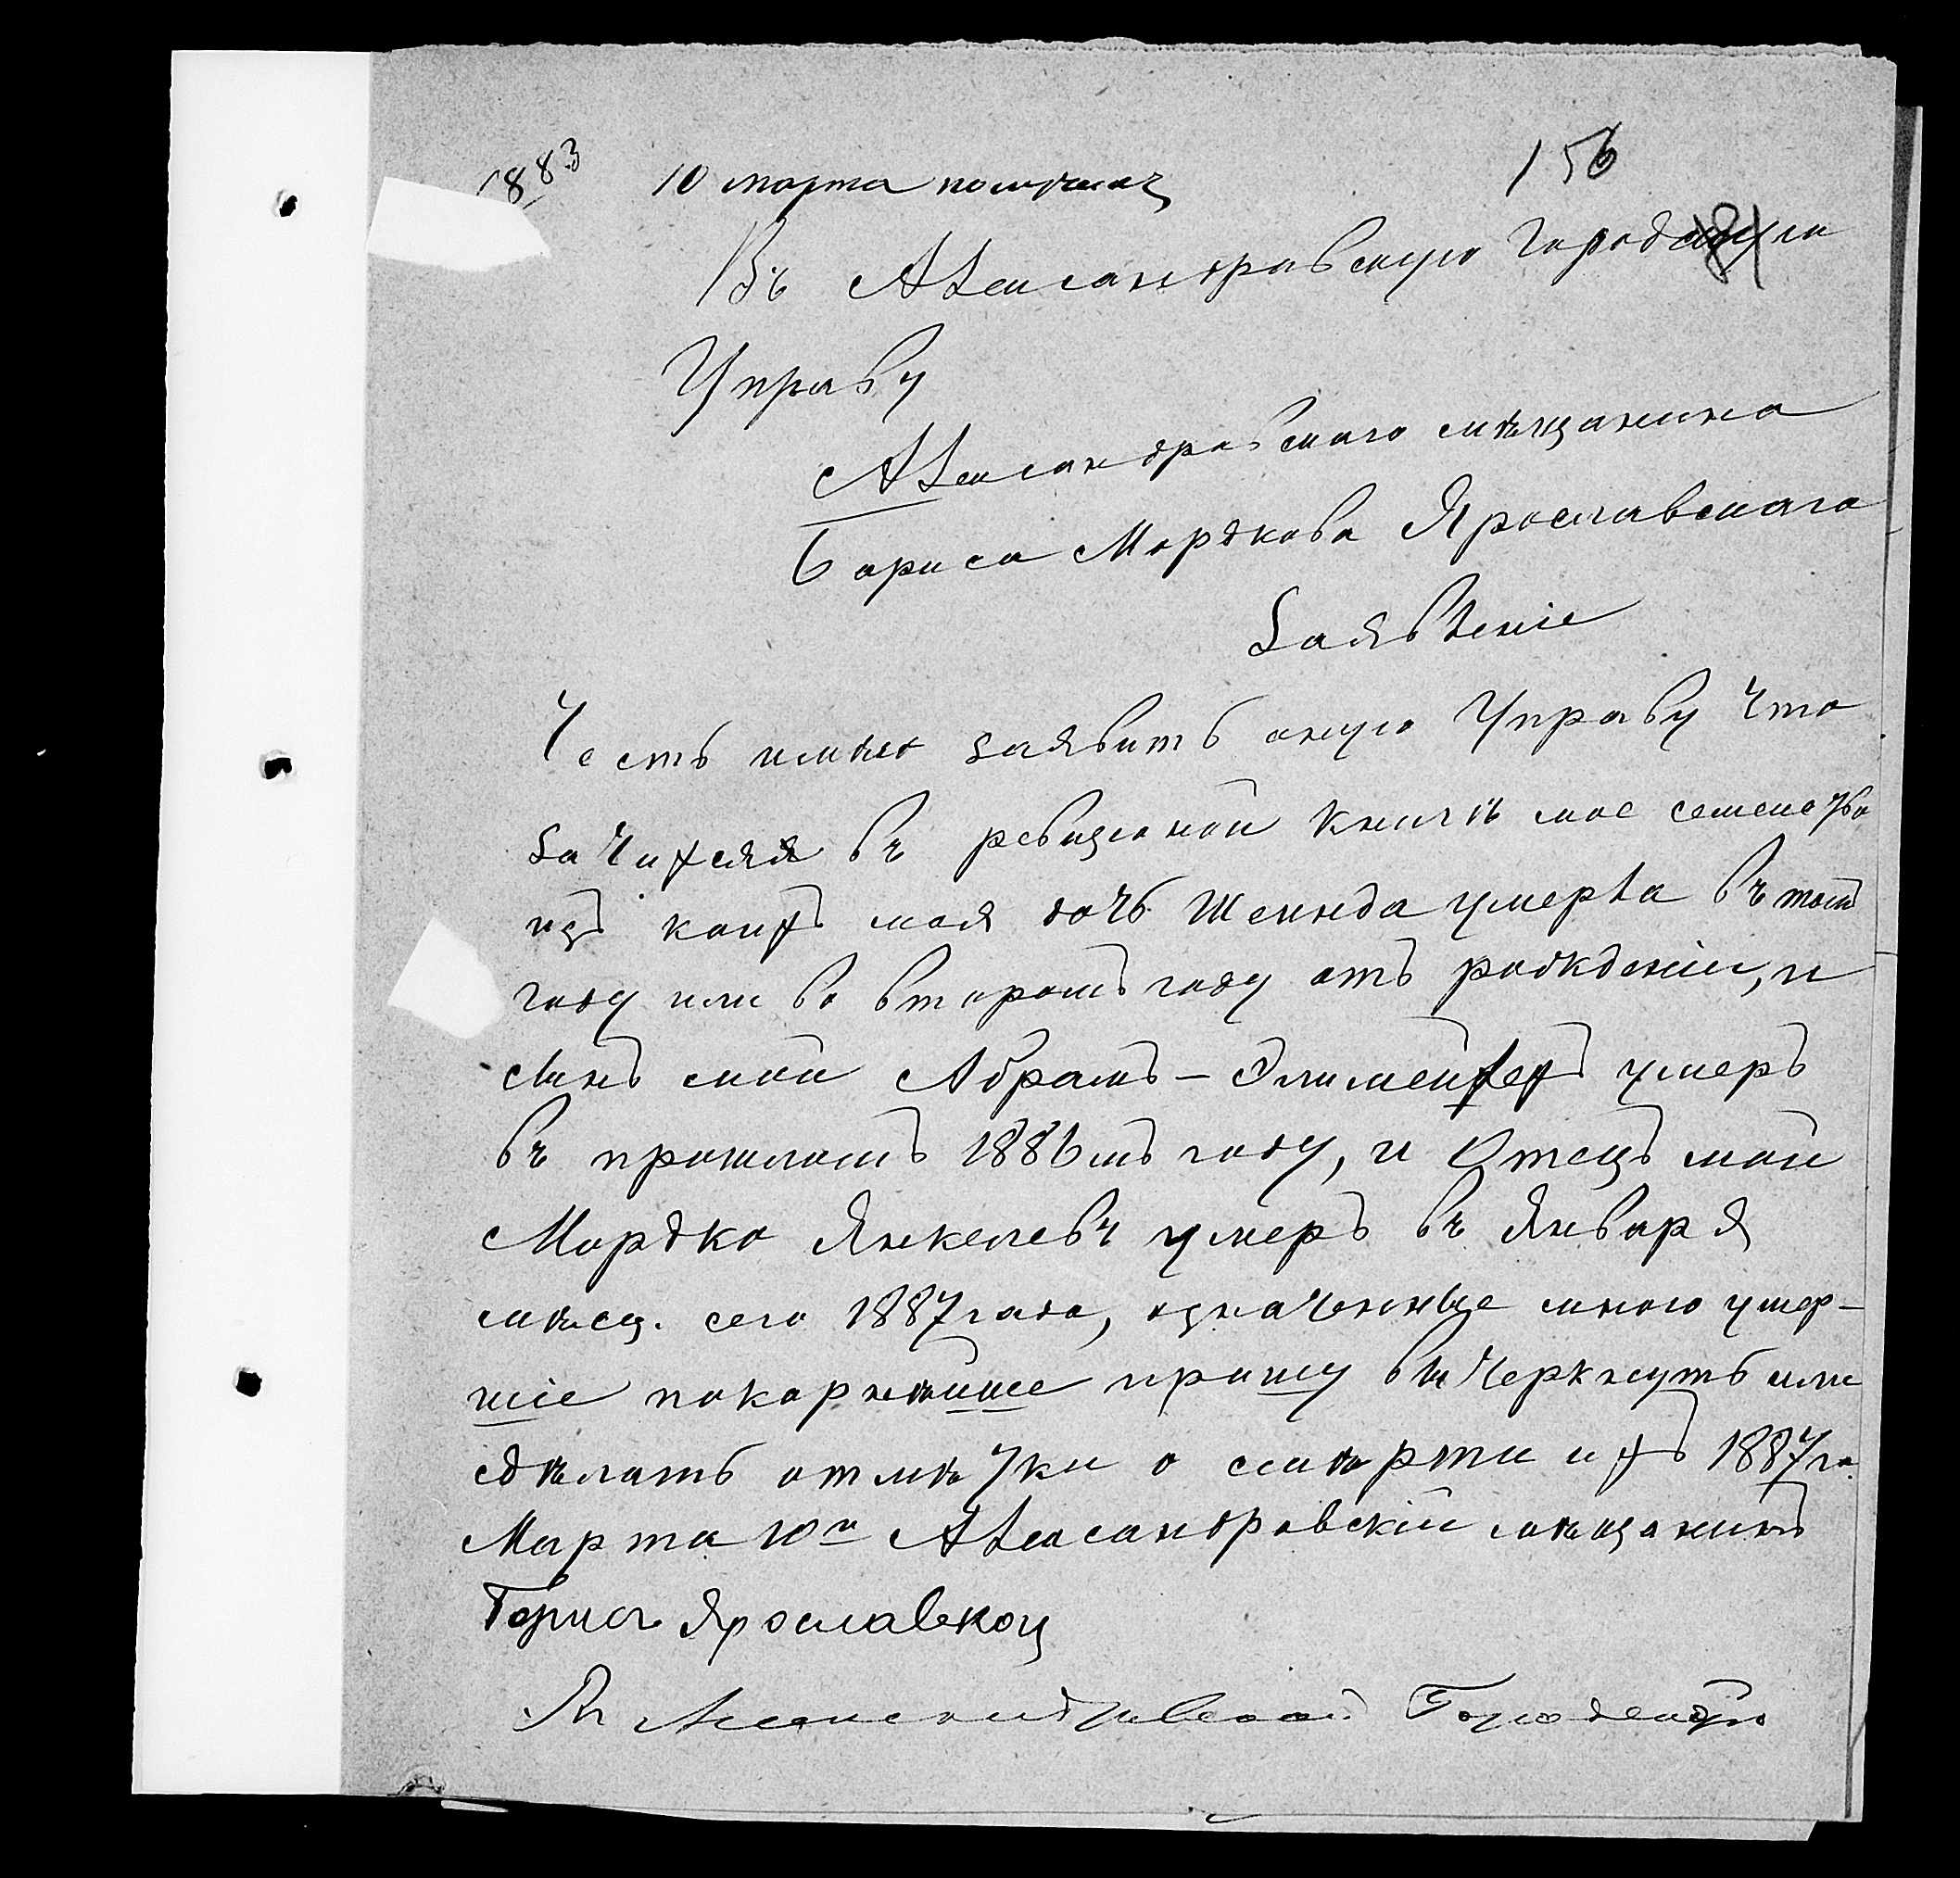 1883 10 марта 156
Въ Александровскую Городскую 81
Управу
Александровскаго мѣщанина
Бориса Мордкова Ярославскаго
Заявленіе
Честь имѣю заявить оную Управу что
зачихсяя въ ревизіоной книгѣ мое семейство
изъ коихъ моя дочь Шейнда умерла въ томъ
году или во второмъ году отъ рождении, и
сынъ мой Абрамъ-Элимейлехъ умеръ
въ прошломъ 1886мъ году, и Отецъ мой
Мордко Янкелевъ умеръ въ Января
мѣсц. сего 1887 года, означенные мною умер-
шіе покорнѣйше прошу вычеркнуть или
сдѣлать отмѣчки о смѣрти ихъ 1887 го.
Марта 10го Александровскій мѣщанинъ
Борисъ Ярославкой
Въ Александровской Городской